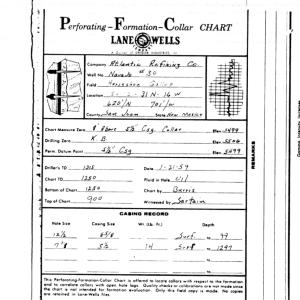 Perforating-Formation-Collar CHART
LANE WELLS
Company Atlantic Refining Co.
Well No. Navajo #30
Field Horseshoe
Location 31N-16W
620'N 701'W
County San Juan State New Mexico
Chart Measure Zero 8' Above 5½ Csg Collar Elev.
Drilling Zero K.B. Elev. 5506
Perm. Datum Point 5½ Csg Elev. 5499
Driller's TD 1315 Date 1-21-59
Chart TD 1250 Fluid in Hole Oil
Bottom of Chart 1250 Chart by Burris
Top of Chart 900 Witnessed by Sartain
REMARKS
CASING RECORD
Hole Size Casing Size Wt. (Lb. Ft.) Depth
8⅝ Surf to 99
7⅞ 5½ 14 Surf to 1297
This Perforating-Formation-Collar Chart is offered to locate collars with respect to the formation
and to correlate collars with open hole logs. Quality checks or calibrations are not made since
the chart is not intended for formation evaluation. Only this field copy is made. No copies
are retained in Lane-Wells files.